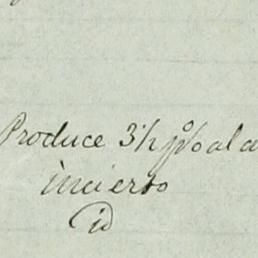 Produce 3½ p% al a
incierto
id